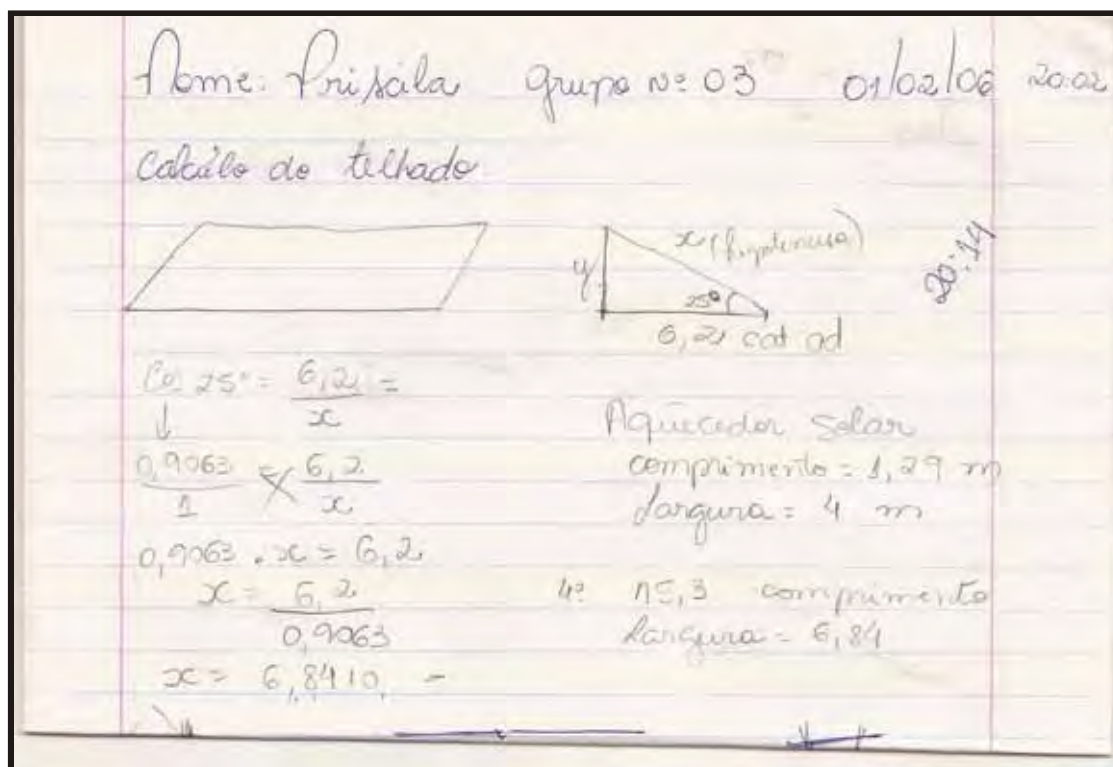 Nome: Priscila grupo Nº 03 01/02/06 20:02
Calculo do telhado
x (hipotenusa)
y
25º
6,2 cat ad
20:14
Cos 25º = 6,2 =
x
↓
0,9063 = 6,2
1 x
0,9063 . x = 6,2
x = 6,2
0,9063
x = 6,8410
Aquecedor Solar
comprimento = 1,29 m
largura = 4 m
4º 15,3 comprimento
largura = 6,84